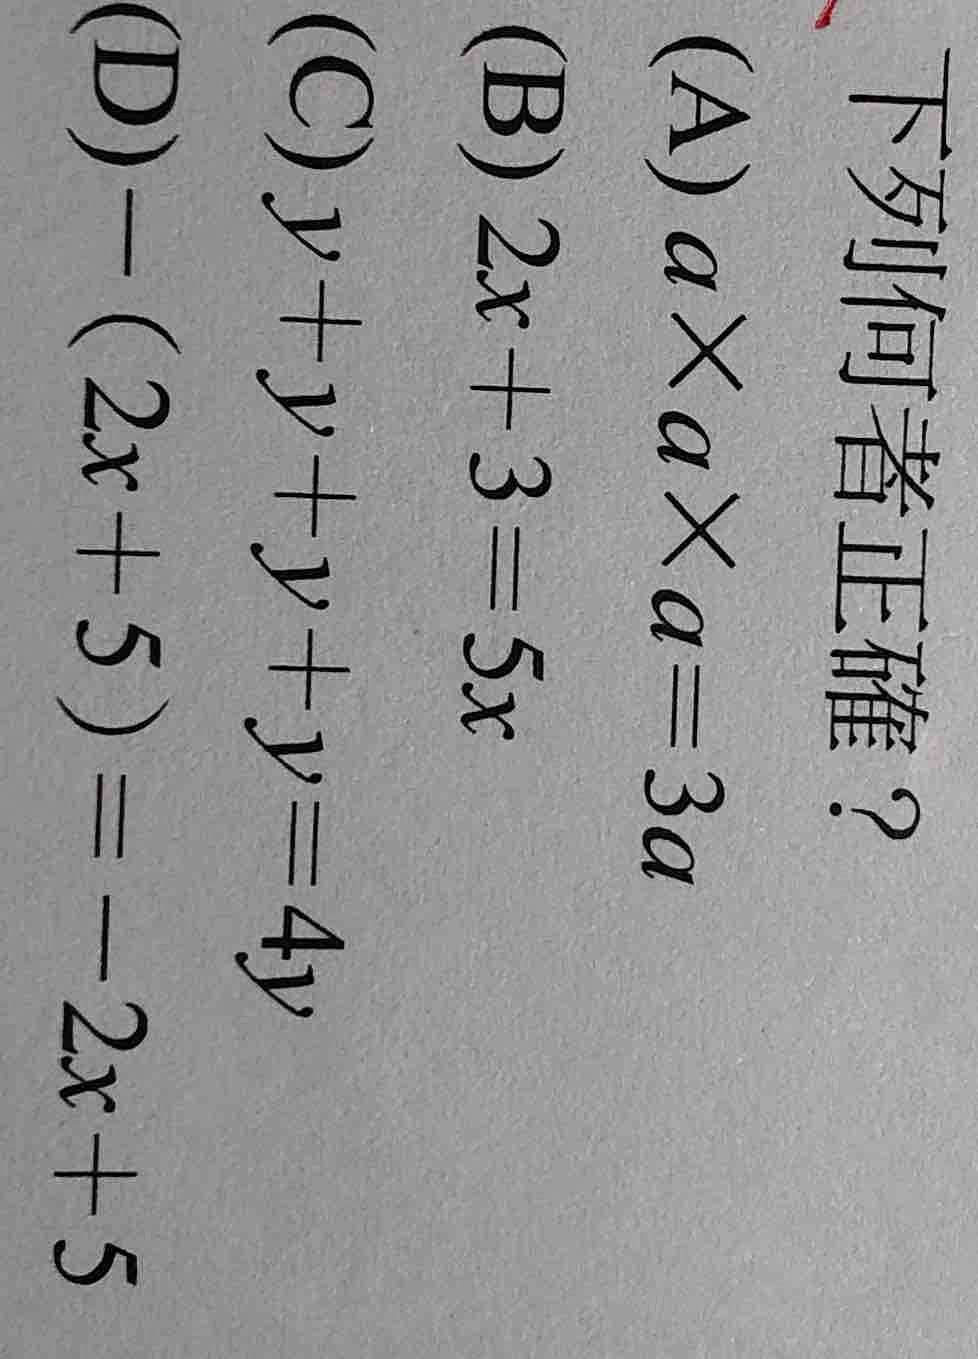 下列何者正確？
(A) a×a×a＝3a
(B) 2x＋3＝5x
(C) y＋y＋y＋y＝4y
(D)－(2x＋5)＝－2x＋5